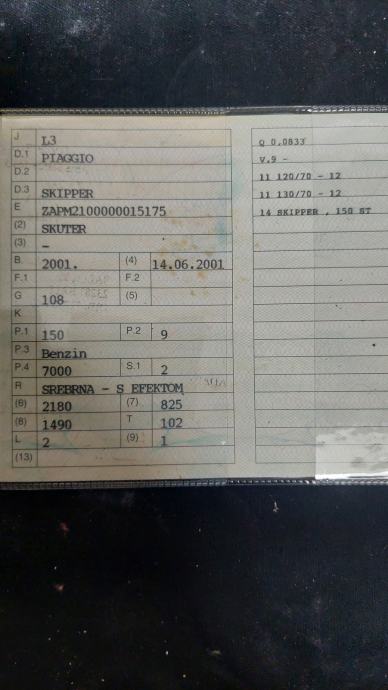 J L3
D.1 PIAGGIO
D.2
D.3 SKIPPER
E ZAPM2100000015175
(2) SKUTER
(3) –
B 2001. (4) 14.06.2001
F.1 F.2
G 108 (5)
K
P.1 150 P.2 9
P.3 Benzin
P.4 7000 S.1 2
R SREBRNA - S EFEKTOM
(6) 2180 (7) 825
(8) 1490 T 102
L 2 (9) 1
(13)
Q 0,0833
V.9 -
11 120/70 - 12
11 130/70 - 12
14 SKIPPER , 150 ST